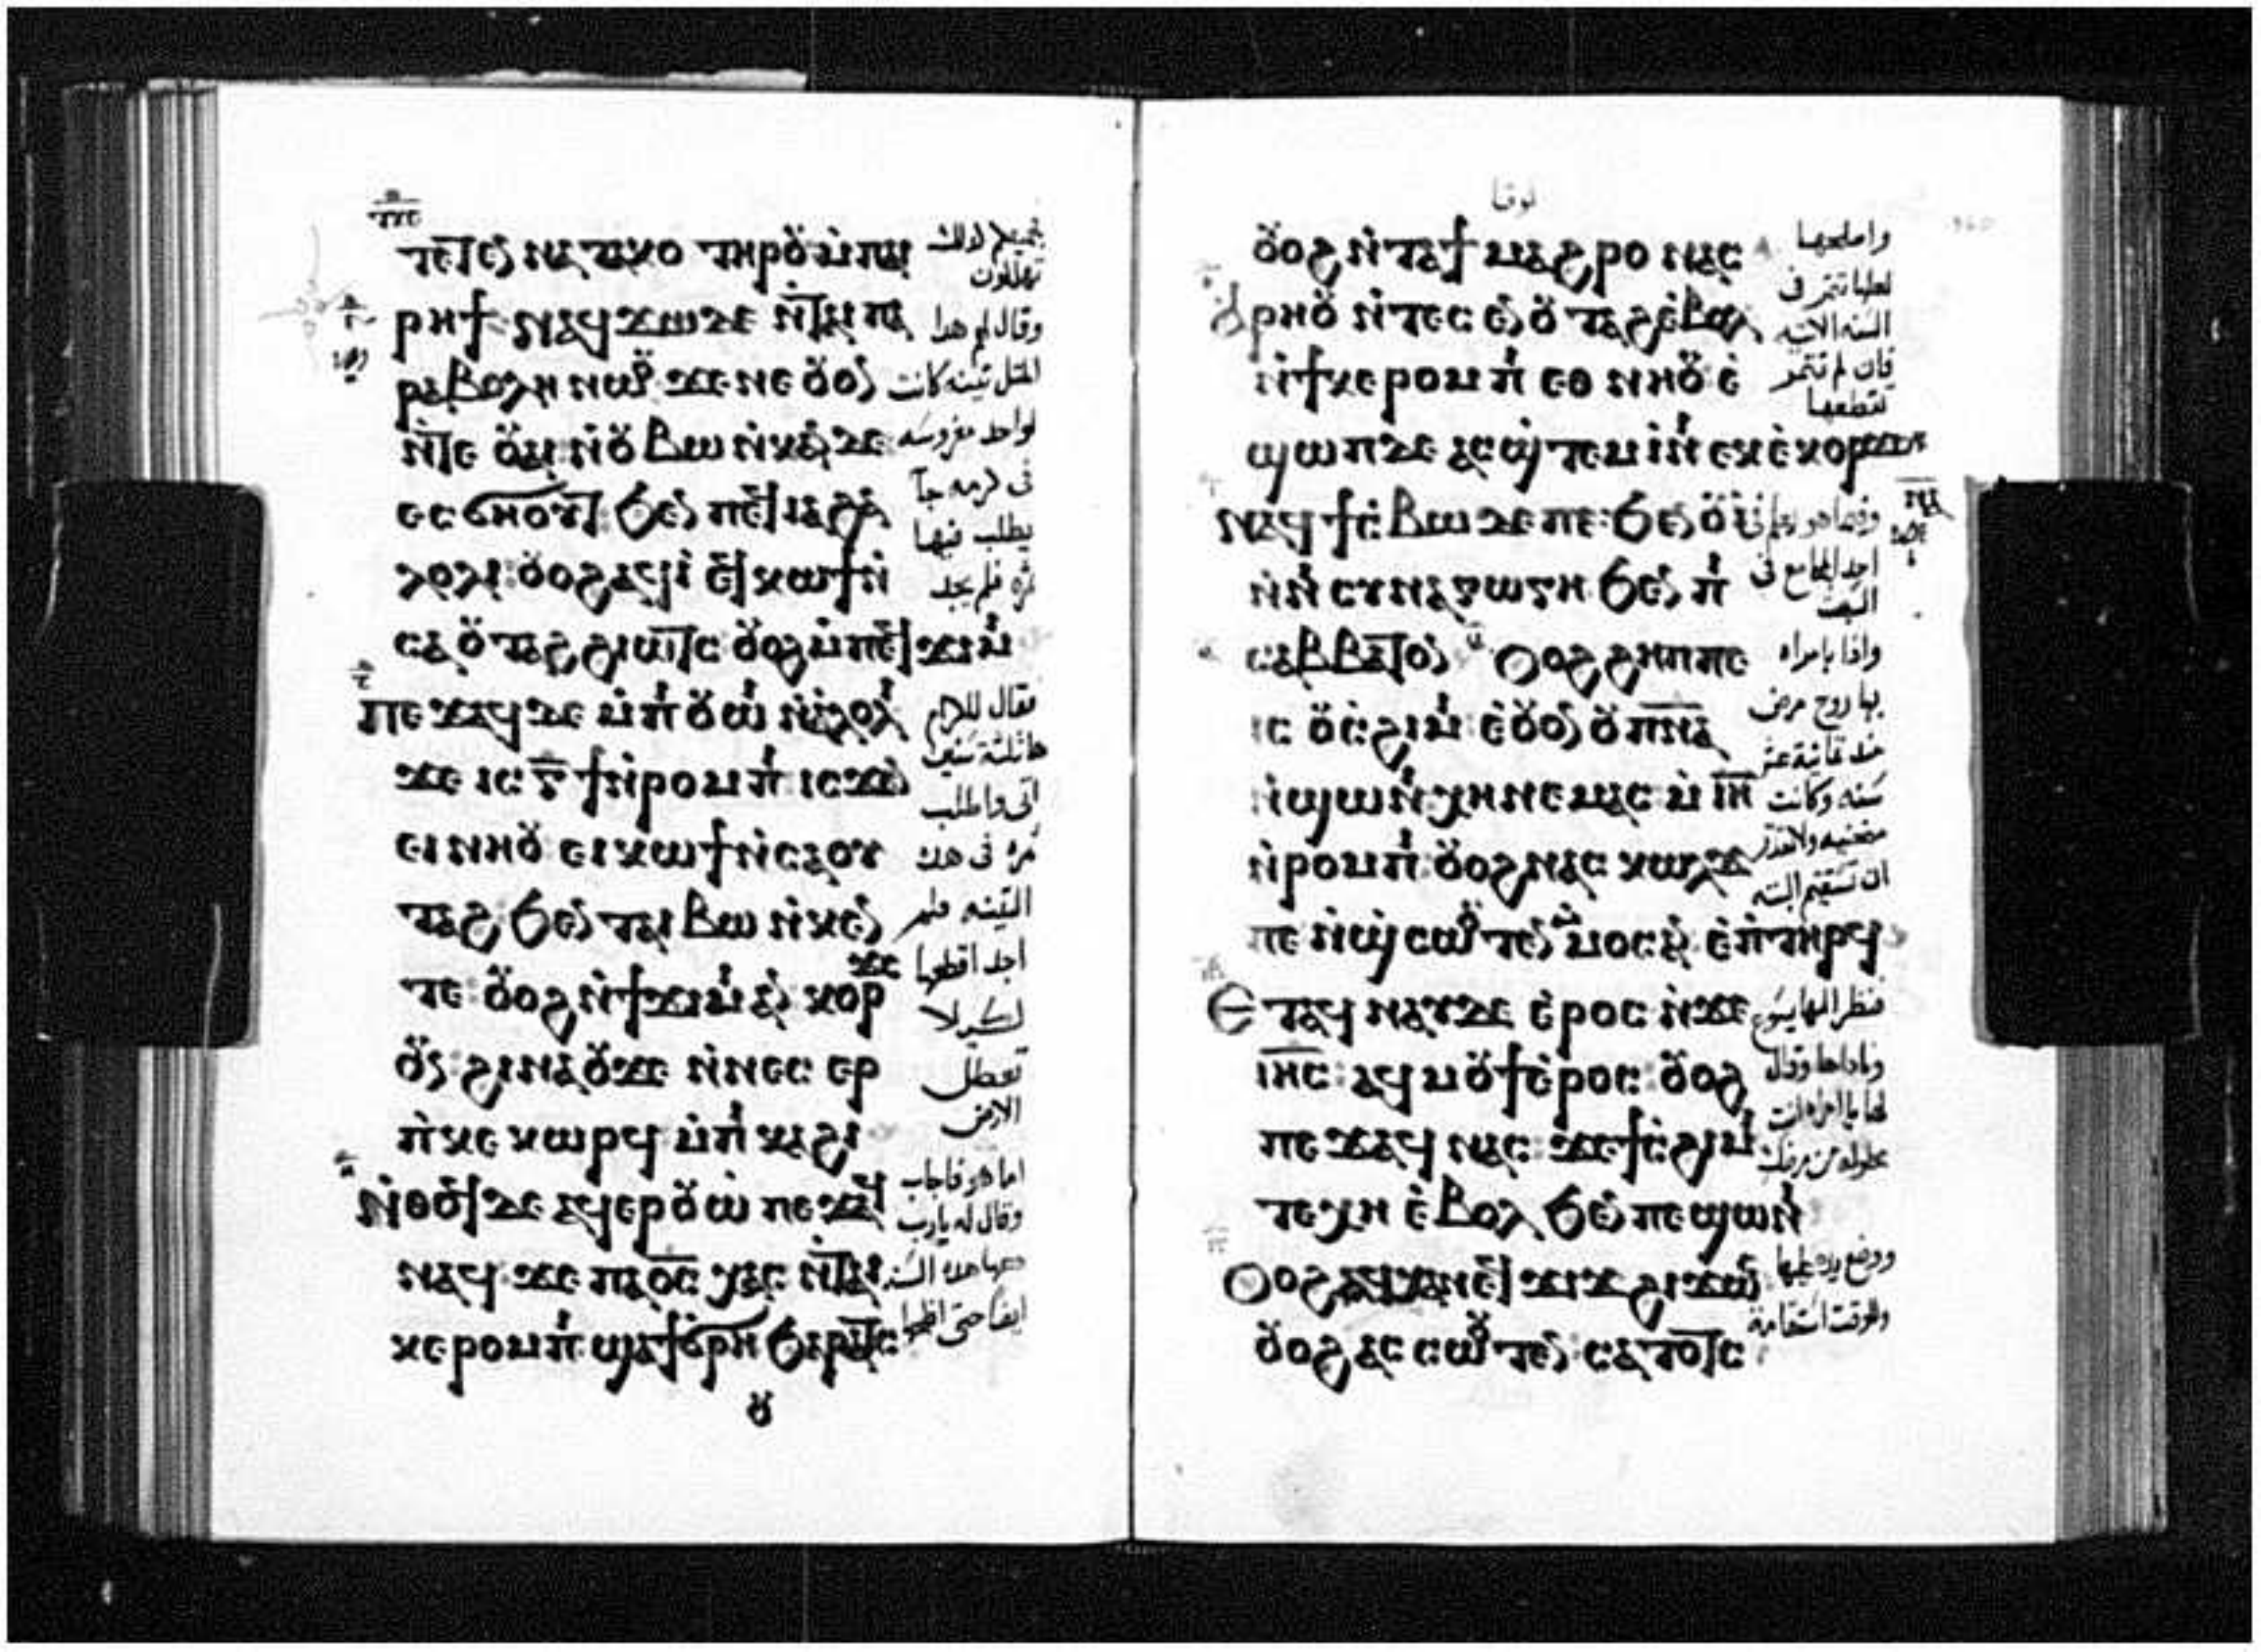 ⲧⲉⲧⲉⲛⲛⲁⲧⲁⲕⲟ ⲧⲏⲣⲟⲩ ⲙ̀ⲡⲁⲓ
ⲣⲏϯ ⲛⲁϥϫⲱ ⲇⲉ ⲛ̀ⲧⲁⲓ ⲡⲁ
ⲣⲁⲃⲟⲗⲏ ⲛⲱⲟⲩ ϫⲉ ⲛⲉ ⲟⲩⲟⲛ
ⲛ̀ⲧⲉ ⲟⲩⲁⲓ ⲛ̀ⲟⲩⲃⲱ ⲛ̀ⲕⲉⲛⲧⲉ
ⲉⲥϭⲏⲟⲩⲧ ϧⲉⲛ ⲡⲉϥⲓⲁϩⲁ
ⲗⲟⲗⲓ ⲟⲩⲟϩ ⲁϥⲓ̀ ⲉϥⲕⲱϯ ⲛ̀
ⲥⲁ ⲟⲩⲧⲁϩ ϩⲓⲱⲧⲥ ⲟⲩⲟϩ ⲙ̀ⲡⲉϥϫⲓⲙⲓ
ⲡⲉϫⲁϥ ⲇⲉ ⲙ̀ⲡⲓⲟⲩⲱⲓ ⲛ̀ⲁⲗⲟⲗⲓ
ϫⲉ ⲓⲥ ⲅ̅ ϯ ⲛ̀ⲣⲟⲙⲡⲓ ⲓⲥϫⲉⲛ
ⲉⲓⲛⲏⲟⲩ ⲉⲓⲕⲱϯ ⲛ̀ⲥⲁ ⲟⲩ
ⲧⲁϩ ϧⲉⲛ ⲧⲁⲓ ⲃⲱ ⲛ̀ⲕⲉⲛ
ⲧⲉ ⲟⲩⲟϩ ⲛ̀ϯϫⲓⲙⲓ ⲁⲛ ⲕⲟⲣϫⲥ
ⲟⲩⲛ ϩⲓⲛⲁ ⲟⲩϫⲉ ⲛ̀ⲛⲉⲥⲉⲣ
ⲡ̀ⲕⲉ ⲕⲱⲣϥ ⲙ̀ⲡⲓⲕⲁϩⲓ
ⲛ̀ⲑⲟϥ ⲇⲉ ⲁϥⲉⲣⲟⲩⲱ ⲡⲉϫⲁϥ
ⲛⲁϥ ϫⲉ ⲡⲁⲟ̅ⲥ̅ ⲭⲁⲥ ⲛ̀ⲧⲁⲓ
ⲕⲉⲣⲟⲙⲡⲓ ϣⲁϯϭⲣⲏ ϧⲁⲣⲁⲧⲥ
ⲟⲩ
بجميعكم كذلك
تهلكون
وقال لهم هذا
المثل تينه كانت
لواحد مغروسه
فى كرمه جآ
يطلب فيها
ثمره فلم يجد
فقال للكرام
هاثلثة سنين
اتى واطلب
ثمره فى هذه
التينه فلم
اجد اقطعها
لكيلا
تعطل
الارض
اما هو فاجاب
وقال له يارب
دعها هذه السنه
ايضا حتى افلحها
لوقا
ⲟⲩⲟϩ ⲛ̀ⲧⲁϯ ⲙⲁϩⲣⲟ ⲛⲁⲥ
ⲁⲣⲏⲟⲩ ⲛ̀ⲧⲉⲥⲉⲛ ⲟⲩⲧⲁϩ ⲉ̀ⲃⲟⲗ
ⲛ̀ϯⲕⲉⲣⲟⲙⲡⲓ ⲉⲑⲛⲏⲟⲩ ⲉ̀
ϣⲱⲡ ⲇⲉ ⲁⲥϣ̀ⲧⲉⲙⲓⲛⲓ ⲉⲕⲉ̀ⲕⲟⲣϫⲥ
ⲛⲁϥϯⲥ̀ⲃⲱ ⲇⲉ ⲡⲉ ϧⲉⲛ ⲟⲩⲓ̀
ⲛ̀ⲛⲓⲥⲩⲛⲁⲅⲱⲅⲏ ϧⲉⲛ ⲡⲓ
ⲥⲁⲃⲃⲁⲧⲟⲛ ⲟⲩⲟϩ ϩⲏⲡⲡⲉ
ⲓⲥ ⲟⲩⲥ̀ϩⲓⲙⲓ ⲉ̀ⲟⲩⲟⲛ ⲟⲩⲡ̅ⲛ̅ⲁ̅
ⲛ̀ϣⲱⲛⲓ ⲭⲏ ⲛⲉⲙⲁⲥ ⲙ̀ⲓ̅ⲏ̅
ⲛ̀ⲣⲟⲙⲡⲓ ⲟⲩⲟϩ ⲛⲁⲥⲕⲱⲗϫ
ⲡⲉ ⲙ̀ⲙⲟⲥ ⲁⲛ ⲉ̀ⲡⲧⲏⲣϥ
ⲉⲧⲁϥⲛⲁⲩ ⲇⲉ ⲉ̀ⲣⲟⲥ ⲛ̀ϫⲉ
ⲓⲏ̅ⲥ̅ ⲁϥⲙⲟⲩϯ ⲉ̀ⲣⲟⲥ ⲟⲩⲟϩ
ⲡⲉϫⲁϥ ⲛⲁⲥ ϫⲉ ϯⲥ̀ϩⲓⲙⲓ
ⲧⲉⲭⲏ ⲉ̀ⲃⲟⲗ ϧⲉⲛ ⲡⲉϣⲱⲛⲓ
ⲟⲩⲟϩ ⲁϥⲭⲁⲛⲉϥϫⲓϫ ϩⲓϫⲱⲥ
ⲟⲩⲟϩ ⲁⲥⲥⲱⲟⲩⲧⲉⲛ ⲥⲁⲧⲟⲧⲥ
واصلحها
لعلها تثمر فى
السنه الاتيه
فان لم تثمر
تقطعها
وفيما هو يعلم فى
احد المجامع فى
السبت
واذا بامراه
بها روح مرض
منذ ثمانية عشر
سنه وكانت
منحنيه ولا تقدر
ان تستقيم البته
فنظر اليها يسوع
وناداها وقال
لها يا امراه انت
محلوله من مرضك
ووضع يده عليها
وللوقت استقامة